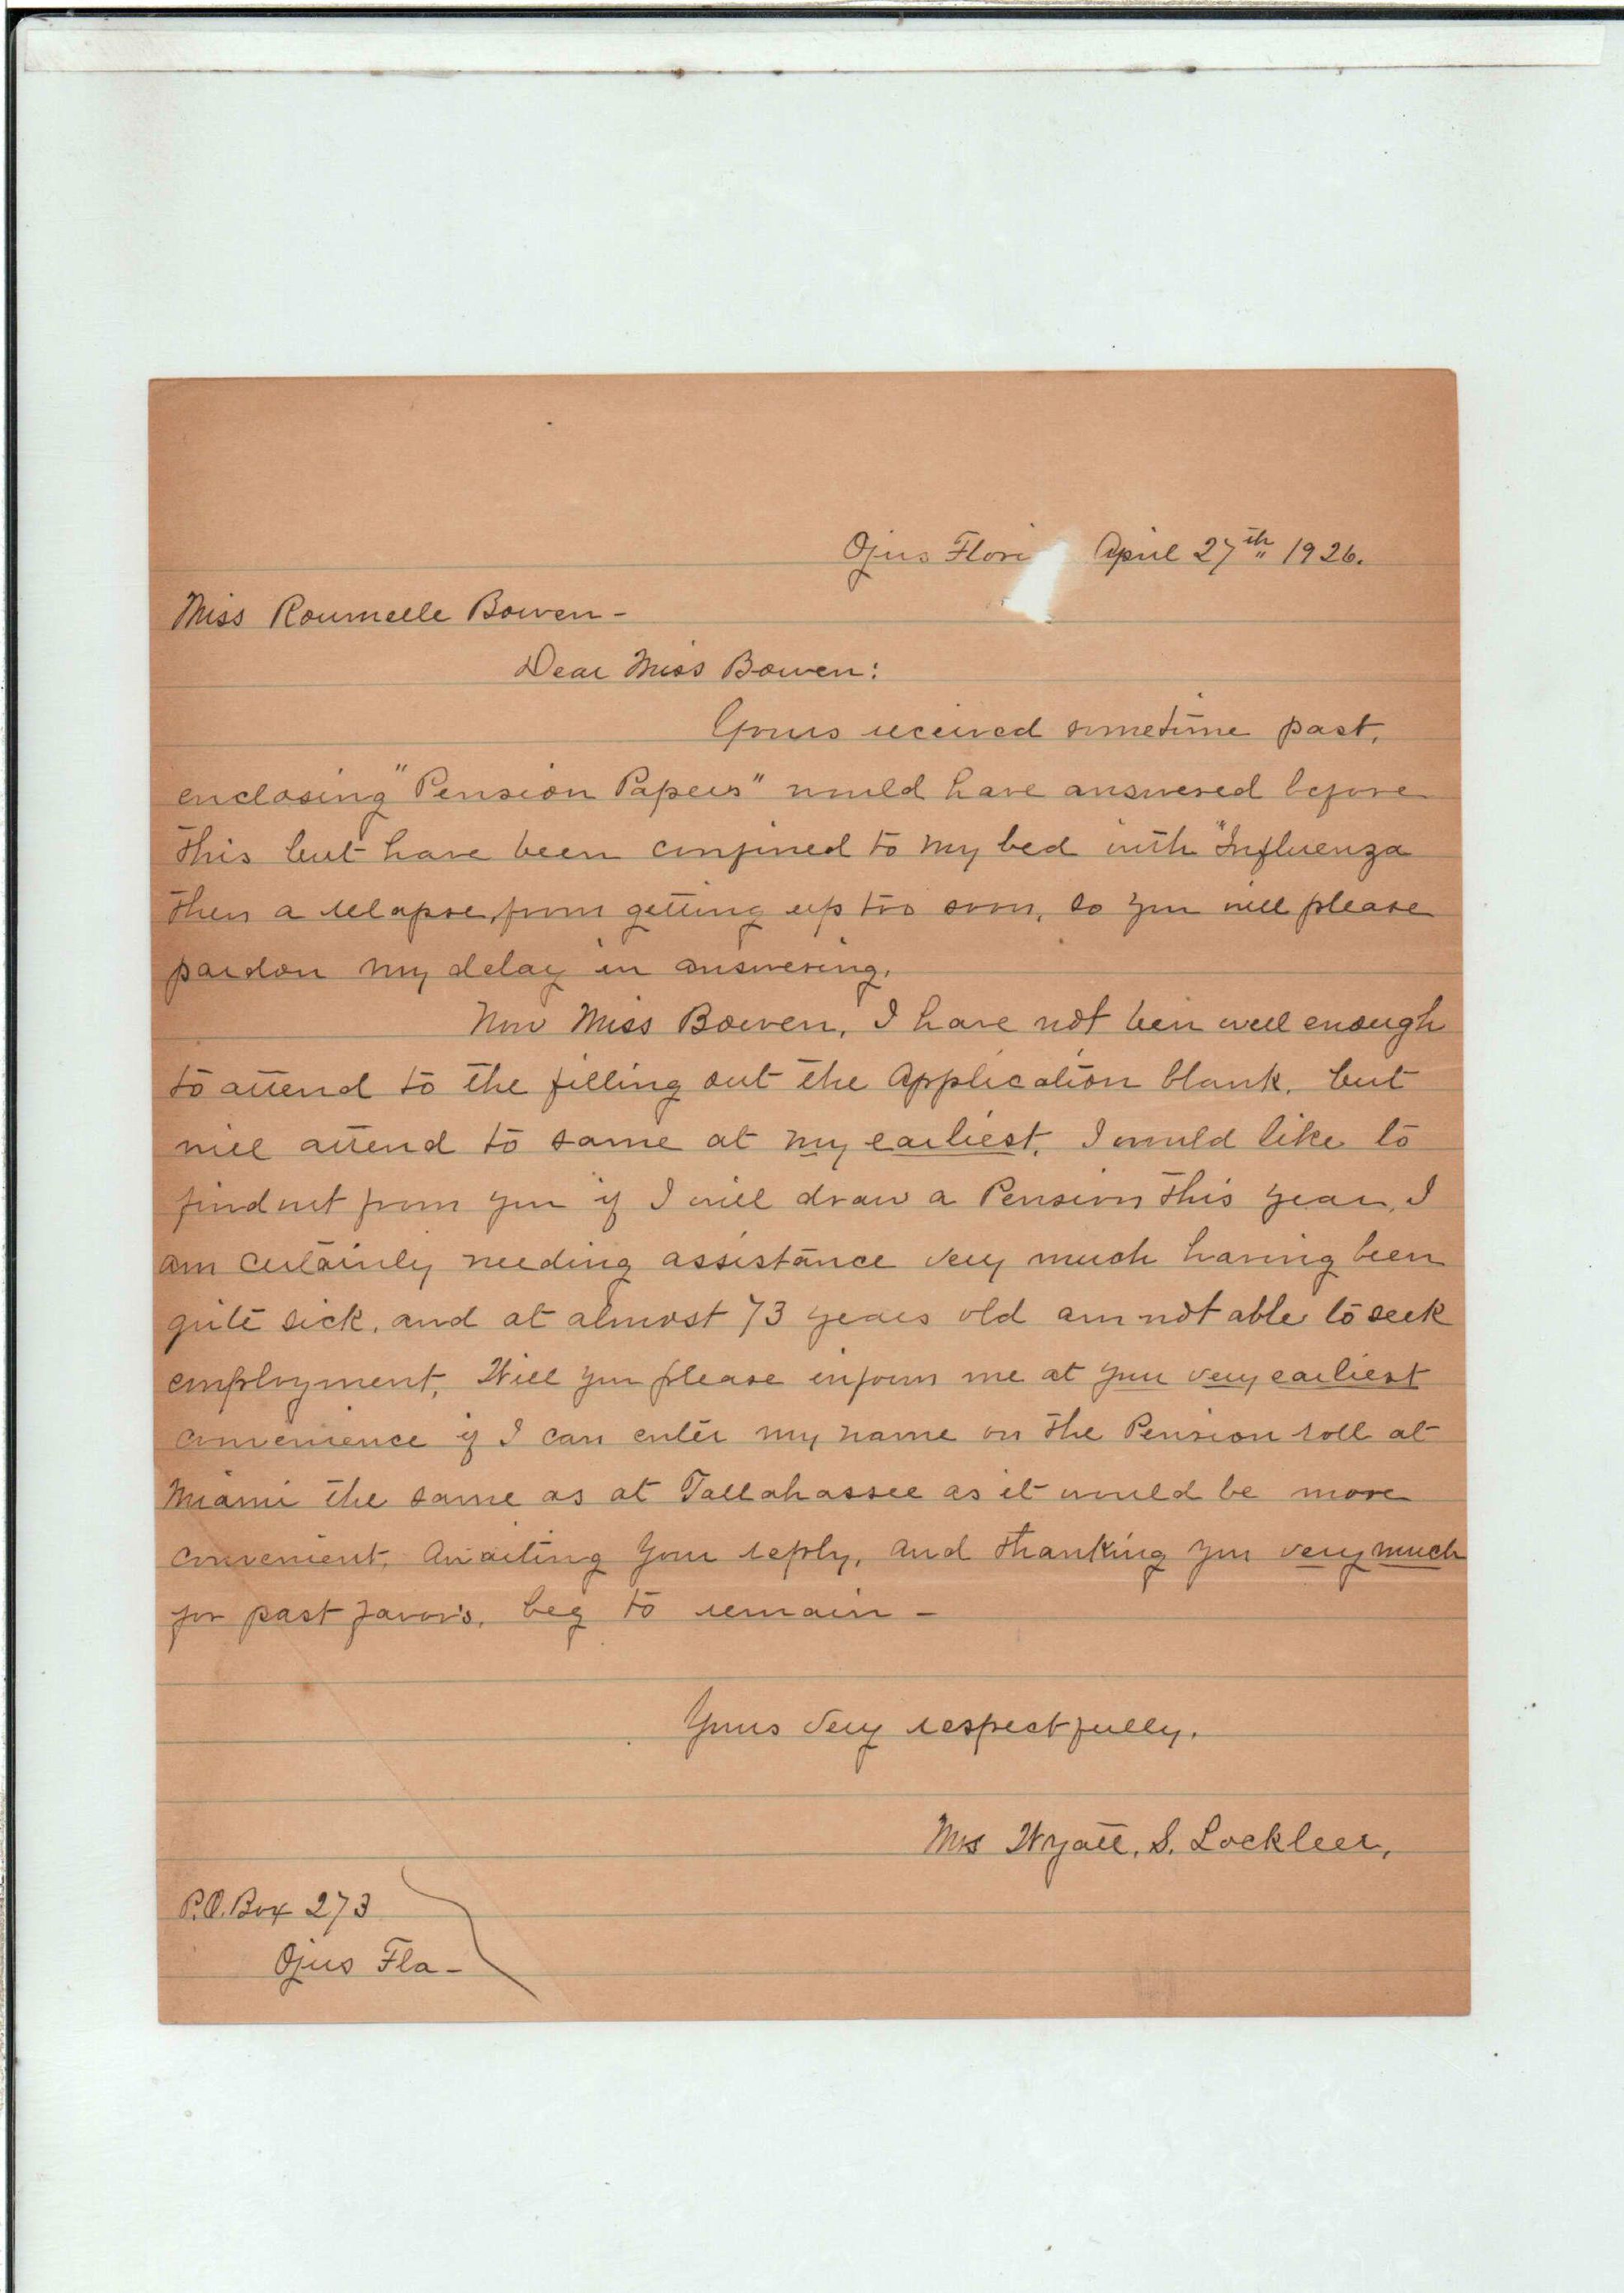 Ojus Flori April 27th 1926.
Miss Roumelle Bowen -
Dear Miss Bowen:
Yours received sometime past,
enclosing "Pension Papers" would have answered before
this but have been confined to my bed with "Influenza
then a relapse, from getting up too soon, so you will please
pardon my delay in answering.
Now Miss Bowen, I have not been well enough
to attend to the filling out the Application blank, but
will attend to same at my earliest. I would like to
find out from you if I will draw a Pension this year, I
am certainly needing assistance very much having been
quite sick, and at almost 73 years old am not able to seek
employment. Will you please inform me at your very earliest
convenience if I can enter my name on the Pension roll at
Miami the same as at Tallahassee as it would be more
convenient. Awaiting your reply, and thanking you very much
for past favors, beg to remain -
Yours very respectfully,
Mrs Wyatt. S. Lockleer,
P.O. Box 273
Ojus Fla -